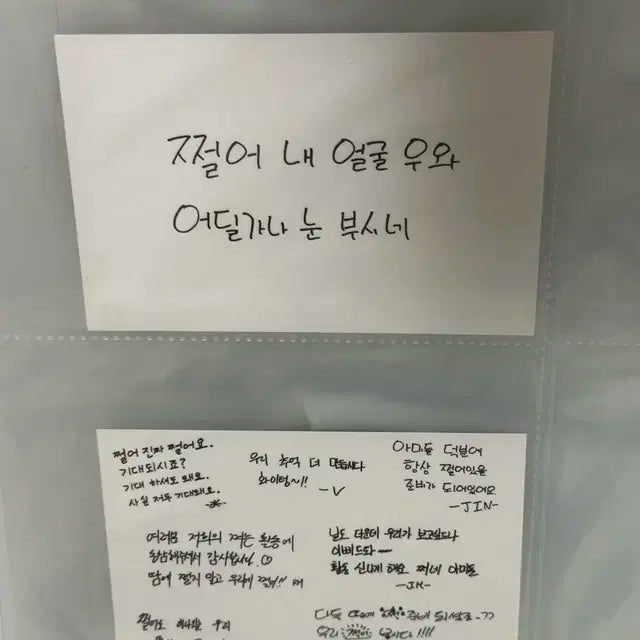 쩔어 내 얼굴 우와
어딜가나 눈 부시네
쩔어 진짜 쩔어요.
기대되시죠?
기대 하셔도 돼요.
사실 저두 기대돼요.
우리 추억 더 만듭시다
화이팅~!!
-V
아미들 덕분에
항상 쩔어있을
준비가 되어있어요
-JIN-
여러분 저희의 쩌는 활동에
감사합니다
땀에 쩔지 말고 우리에 쩔길!!
날도 더운데 우리가 보고싶다니
이쁘드라~~
활동 신나게 해요 쩌네 아미들
-JK-
쩔어도 우리
다들 준비 되셨죠~??
우리 쩝니다!!!!